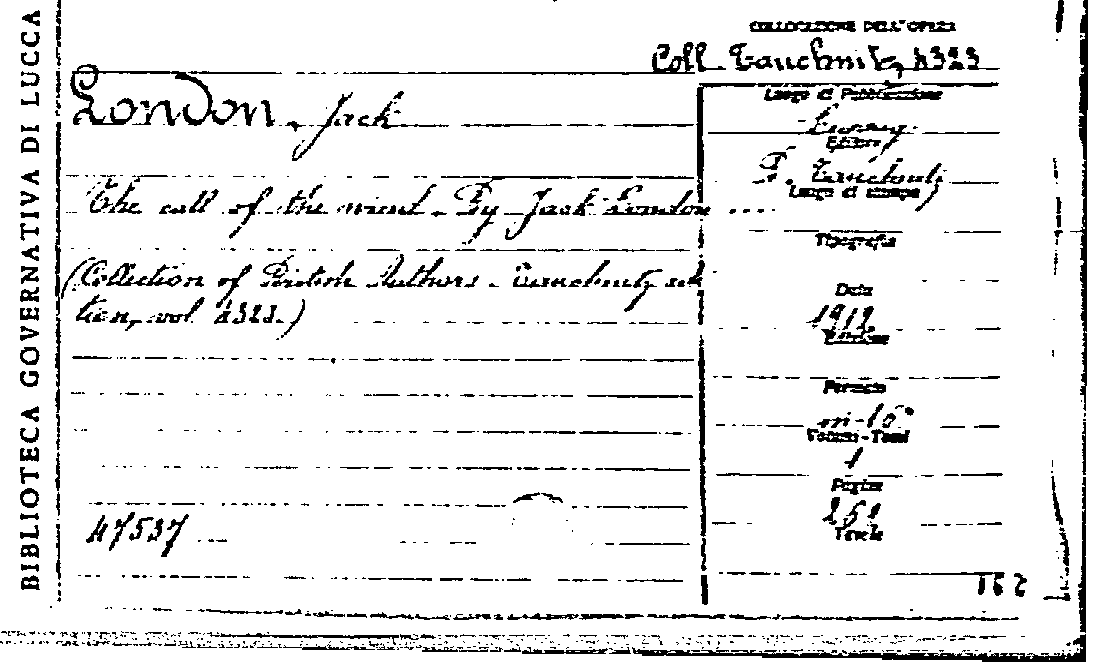 BIBLIOTECA GOVERNATIVA DI LUCCA
COLLOCAZIONE DELL'OPERA
Coll. Tauchnitz, 4323
London, Jack
Luogo di Pubblicazione
Editore
The call of the . By Jack London ....
T. Tauchnitz
Luogo di stampa
Tipografia
(Collection of British Authors. Tauchnitz edi
tion, vol. 4323.)
Data
1912
Edizione
Formato
in-16°
Volumi-Tomi
1
Pagine
Tavole
47537